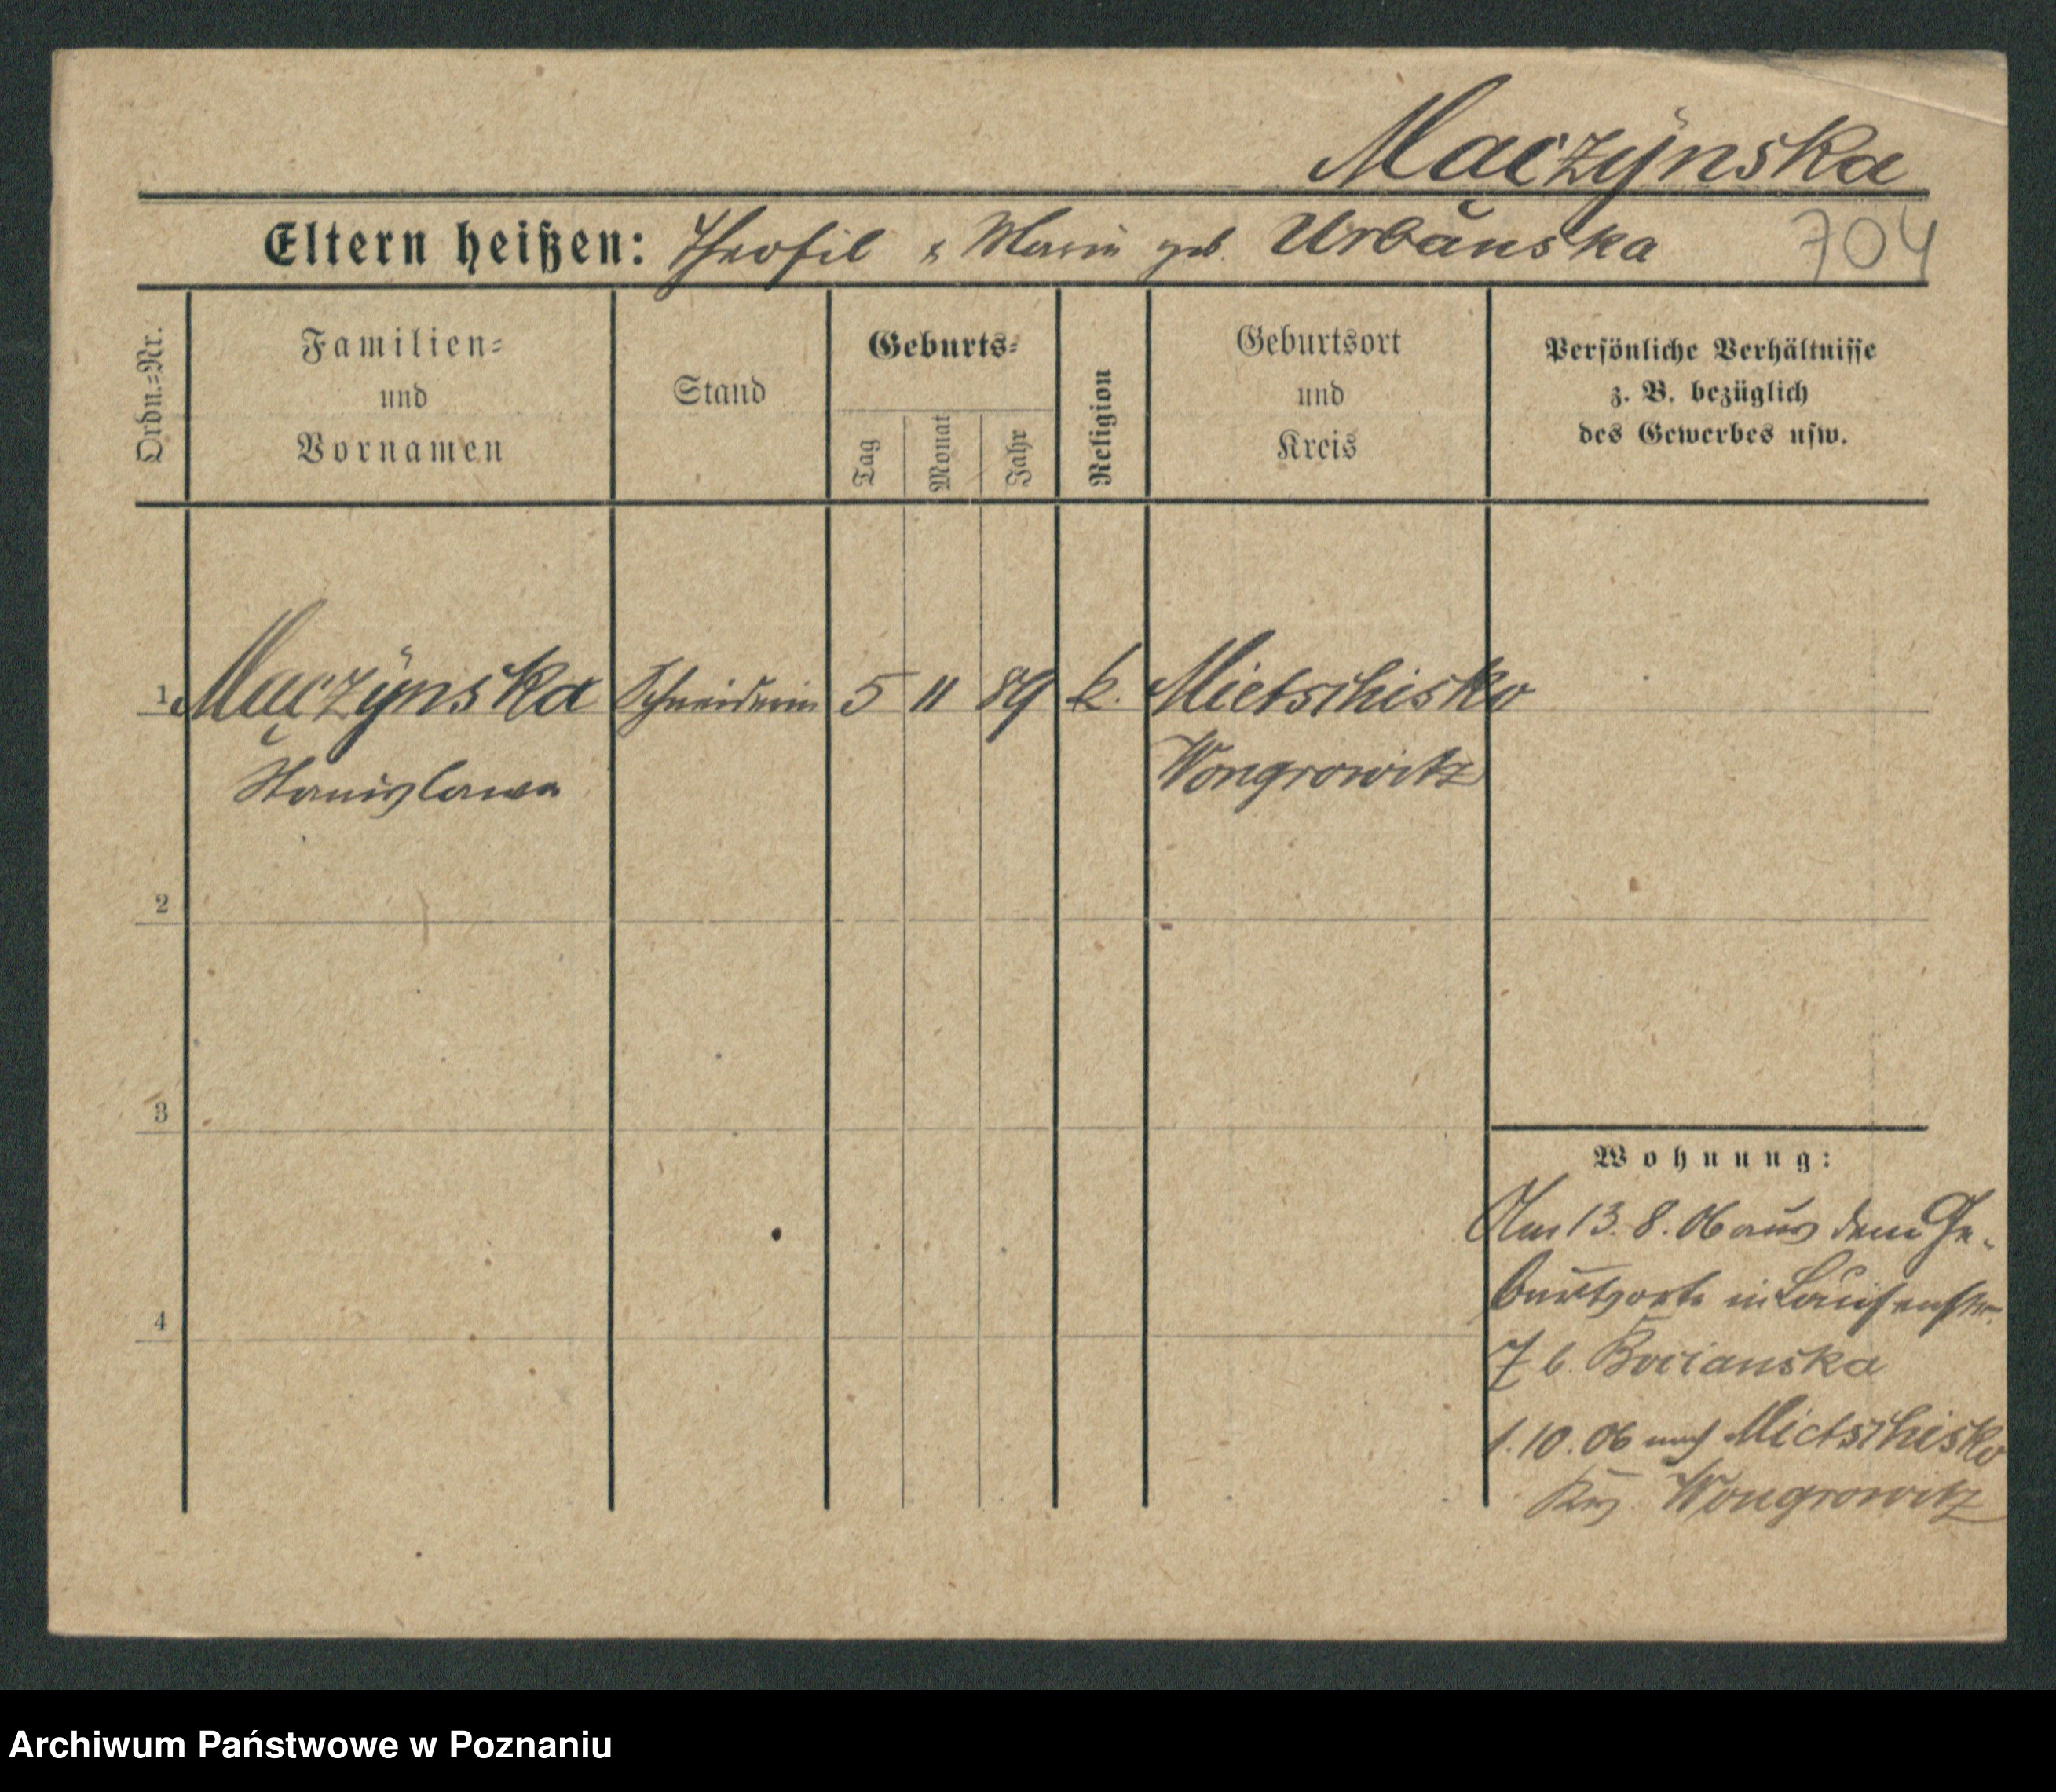 Maczynska
Eltern heißen: Theofil & Marie geb. Urbanska 704
Ordn.=Nr.
Familien=
und
Vornamen
Stand
Geburts=
Tag
Monat
Jahr
Religion
Geburtsort
und
Kreis
Persönliche Verhältnisse
z. B. bezüglich
des Gewerbes usw.
1 Mączynska Schneiderin 5 11 89 k. Mietschisko
Stanislawa Wongrowitz
2
3
4
Wohnung:
Am 13.8.06 aus dem Ge-
burtsorte in Louisenstr.
7 b. Bocianska
1.10.06 nach Mietschisko
Krs. Wongrowitz
Archiwum Państwowe w Poznaniu